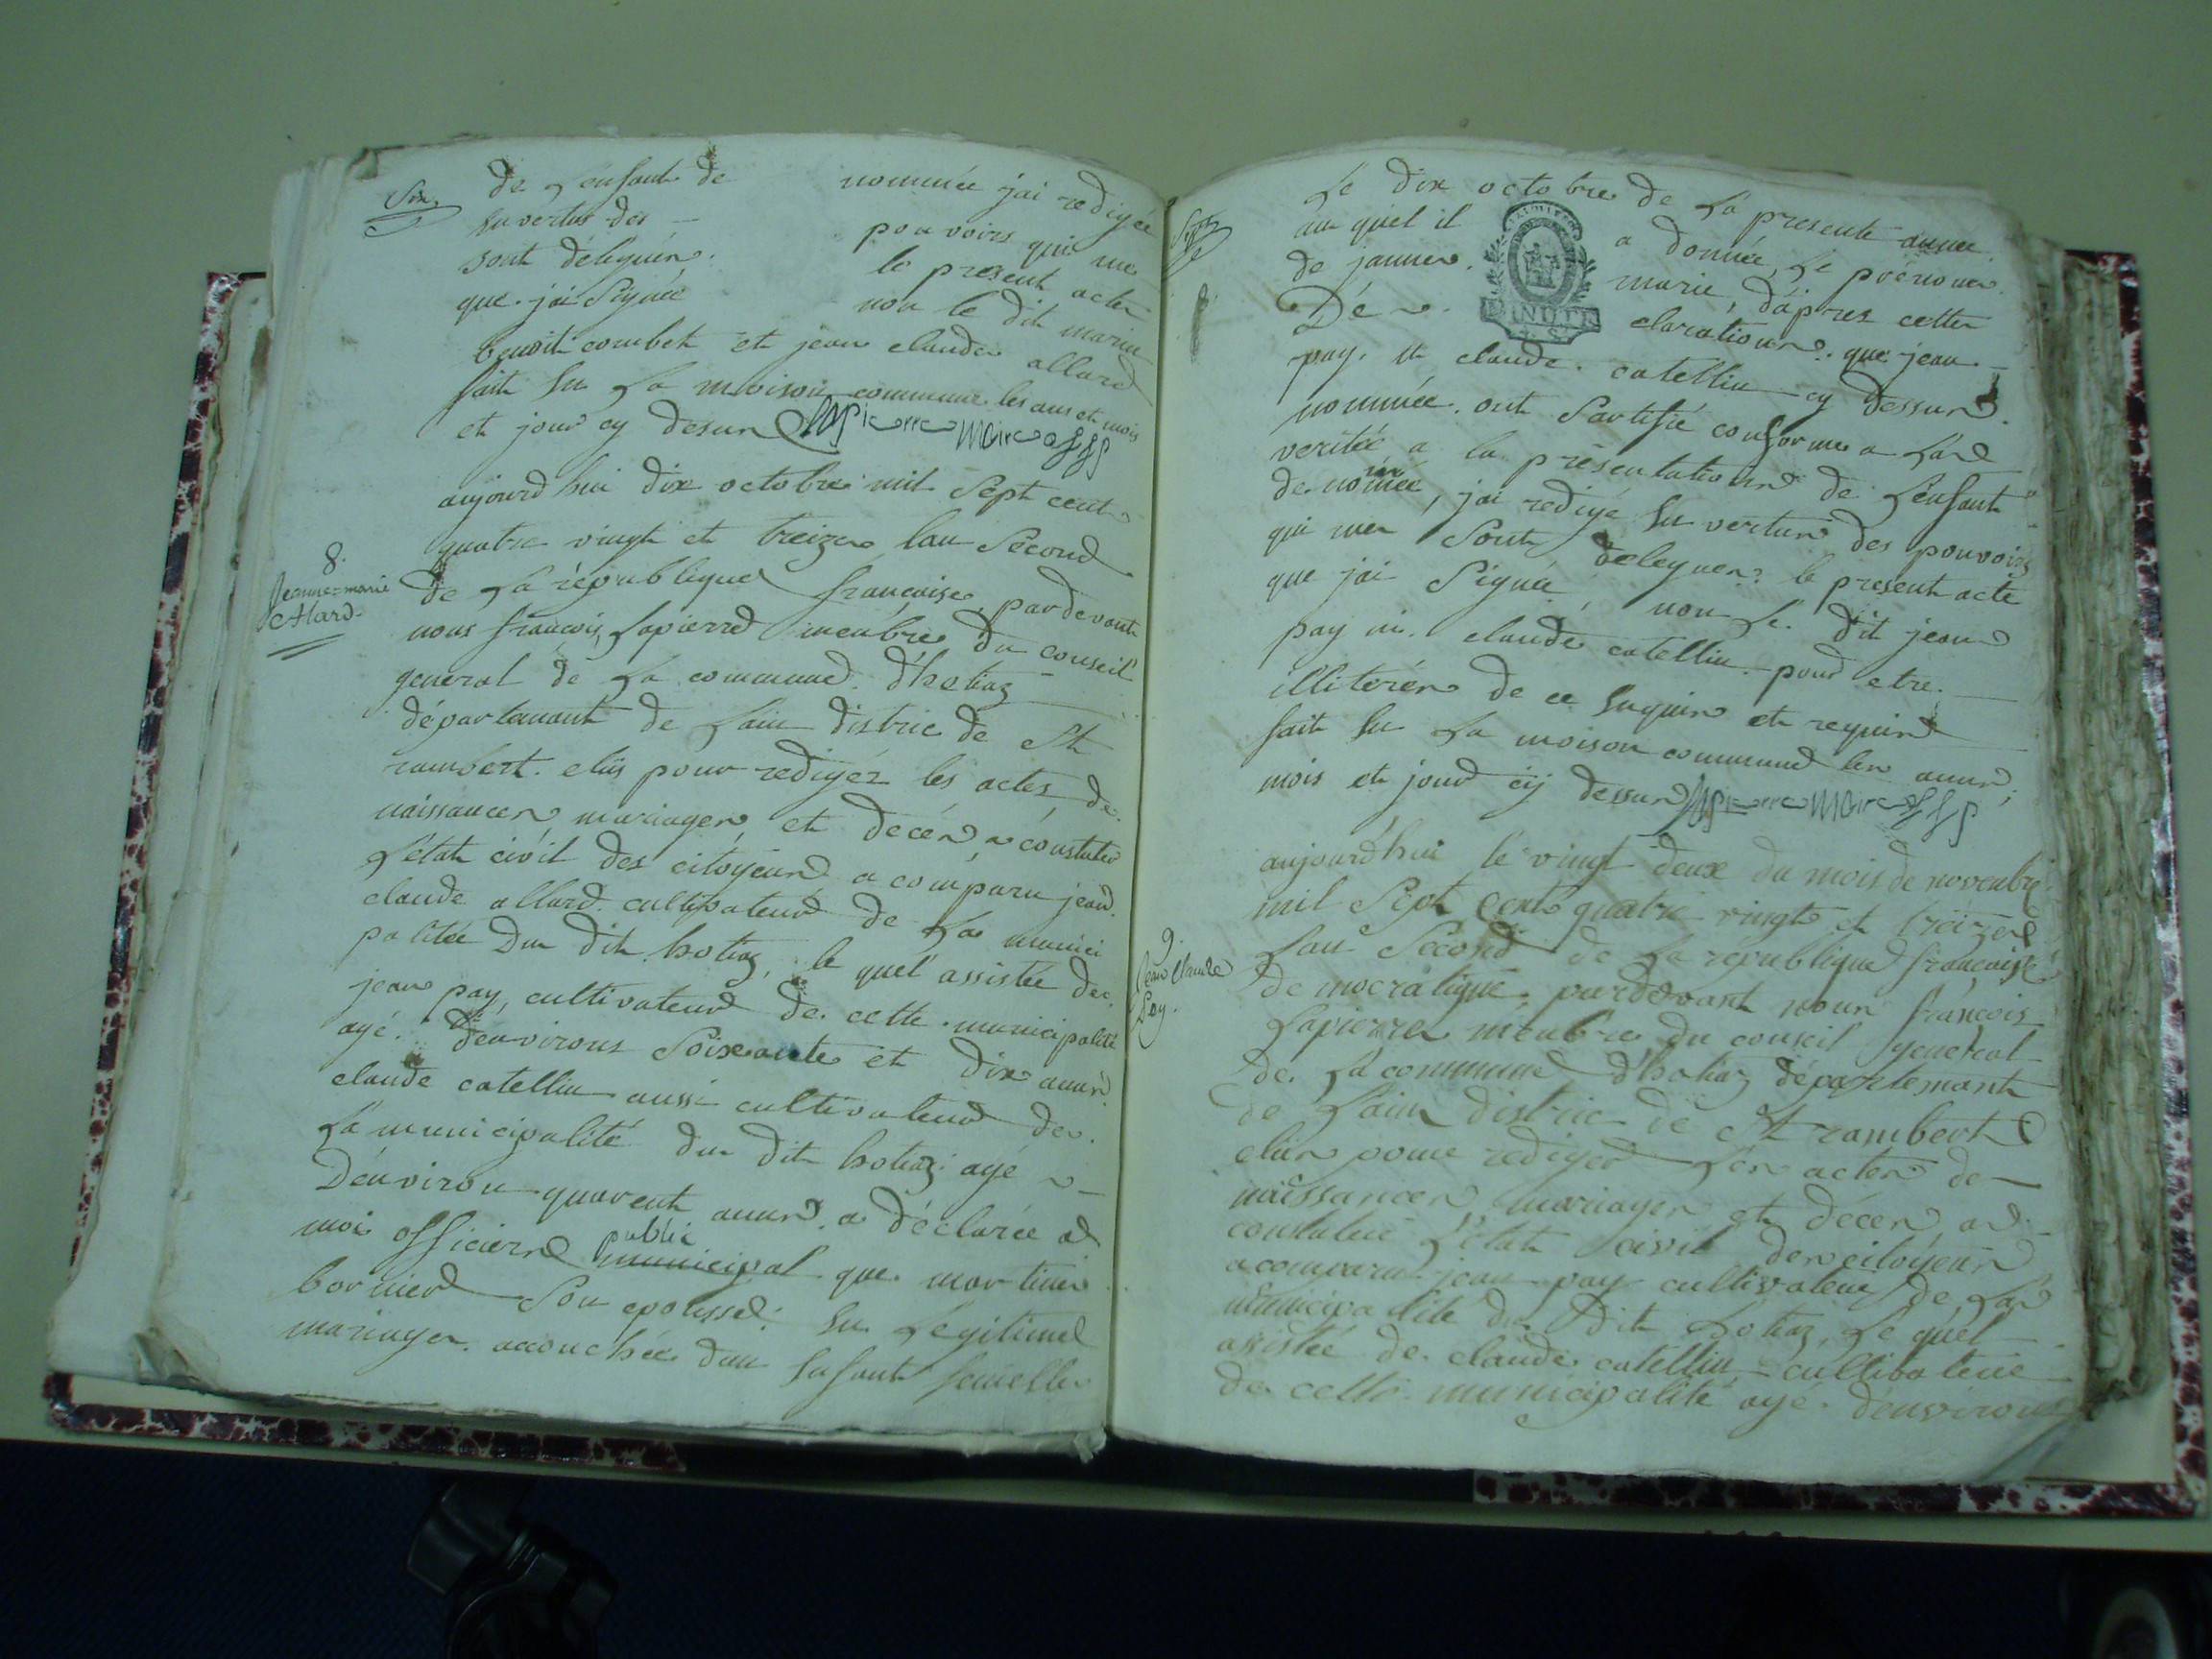 Six
de L'enfant de nommée jai redigée
En vertus des pouvoirs qui me
sont déleguéz. le present acte
que jai Signée non le dit marin
benoit combet et jean claude allard
fait En La moison commune les ans et mois
et jour cy desun Lapierre Maire offp
aujourdhui dix octobre mil Sept cent
quatre vingt et treize lan Second
8.
Jeanne-marie
Allard.
de La république françoise, pardevant
nous françois Lapierre menbre du conseil
general de La commune d'hotiaz
départemant de Lain distric de St
rambert. elus pour redigéz les actes de
naissancer, mariager, et decér a constater
L'état civil des citoyens a comparu jean
claude allard cultivateur de La munici
palitée Du dit hotiaz, le quel assistée de
jean pay, cultivateur de cette municipalité
agé. d'environs Soixante et dix anns
claude catellin aussi cultivateur de
La municipalité du dit hotiaz agé
D'environ quarent anns. a déclarée a
moi officiere public municipal que martine
bornier Son epousse. En Legitime
mariager. accouchée dun Enfant femelle
Sept
Le dix octobre de La presente annee
au quel il a donnée Le prénom
de janne marie, d'apres cette
Dé claration. que jean
pay. et claude. catellin cy dessun.
nommée. ont Sartifié conforme a La
verité a la présentation de L'enfant
de nomée, jai redigé En vertur des pouvoirs
qui mer Sont deleguer. le present acte
que jai Signée, non Le dit jean
pay ni. claude catellin pour etre.
illiterér de ce Enquir et requir
fait En La moison commune ler anns,
mois et jour cÿ dessun Lapierre Maire offp
aujourdhui le vingt deux du mois de novenbre
mil Sept cent quatre vingt et treize
9.
Jean Claude
Pay.
Lan Second de La république françoise
démocratique. pardevant nour françois
Lapierre menbre du conseil general
de La commune d'hotiaz départemant
de Lain distric de St rambert
elur pour rediger Ler acter de
naissancer, mariager et décer a
constater L'état civil der citoyens
a comparu jean pay cultivateur de La
municipalité du Dit hotiaz, Le quel
asistée de claude catellin, cultivateur
de cette municipalité agé d'environs